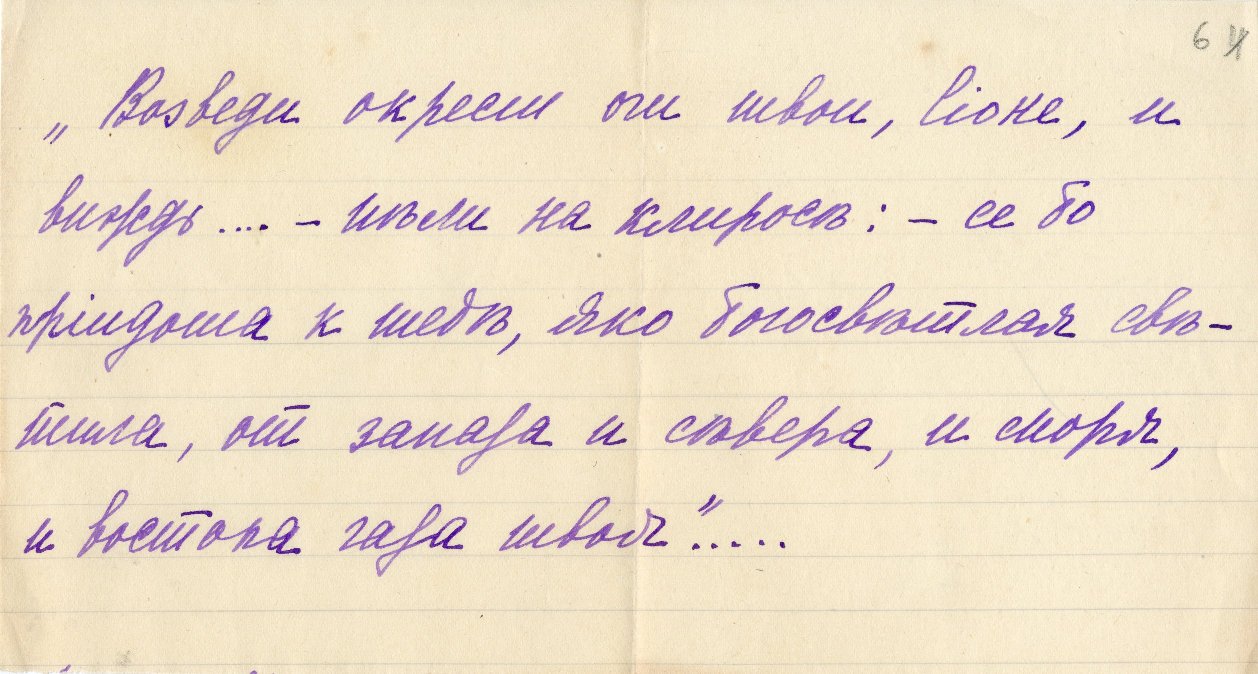 64
„ Возведи окрест очи твои, Сіоне, и
виждь.... – пѣли на клиросѣ: – се бо
пріидоша к тебѣ, яко богосвѣтлая свѣ–
тила, от запада и сѣвера, и моря,
и востока чада твоя".....